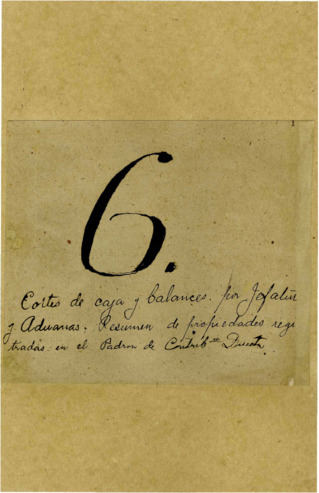 6.
Cortes de caja y balances. por Jefatur
y Aduanas. Resumen de propiedades regi
tradas en el Padron de Contrib.es Direct.